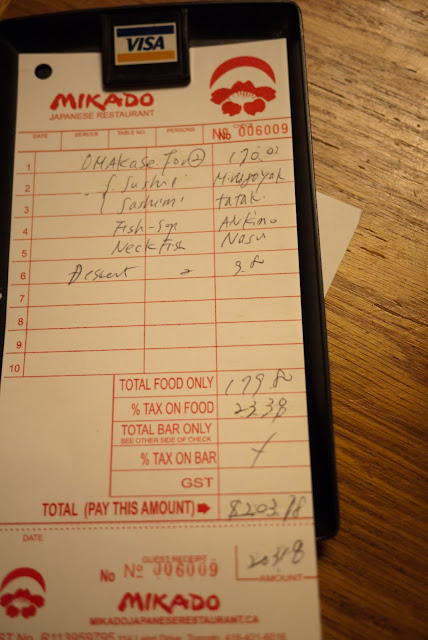 VISA
MIKADO
JAPANESE RESTAURANT
DATE SERVER TABLE NO. PERSONS CHECK
No 006009
1 OMAKase For 2 170.00
2 Sushi
3 Sashimi tatak
4 Fish-Sop Ankimo
5 Neck Fish Nasu
6 Dessert 2 9.8
7
8
9
10
TOTAL FOOD ONLY 179.8
% TAX ON FOOD 23.38
TOTAL BAR ONLY
SEE OTHER SIDE OF CHECK
% TAX ON BAR
GST
TOTAL (PAY THIS AMOUNT) $203.18
DATE
GUEST RECEIPT
No Nº 006009
203.18
AMOUNT
MIKADO
MIKADOJAPANESERESTAURANT.CA